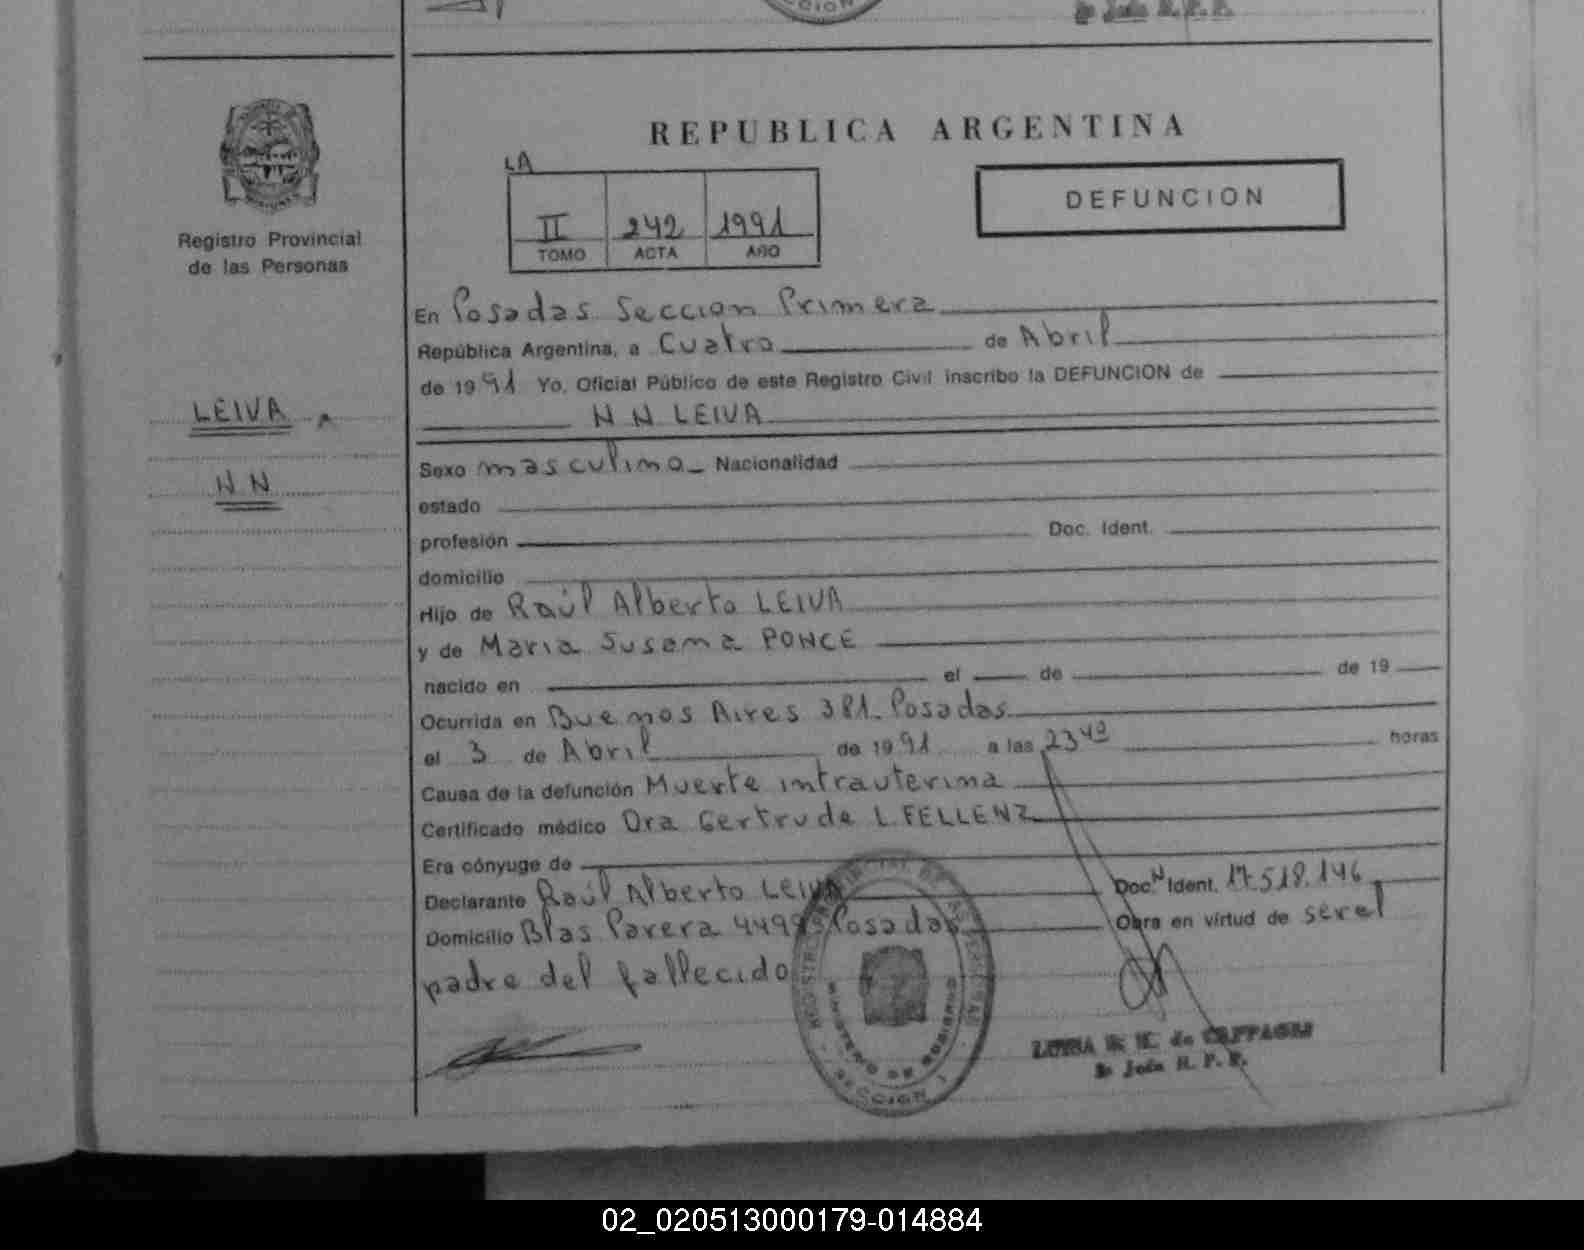 REPUBLICA ARGENTINA
LA
II 242 1991
TOMO ACTA AÑO
DEFUNCION
Registro Provincial
de las Personas
LEIVA
N N
En Posadas Seccion Primera
República Argentina, a Cuatro de Abril
de 1991 Yo, Oficial Público de este Registro Civil inscribo la DEFUNCION de
N N LEIVA
Sexo masculino Nacionalidad
estado
profesión Doc. Ident.
domicilio
Hijo de Raúl Alberto LEIVA
y de Maria Susana PONCE
nacido en el de de 19
Ocurrida en Buenos Aires 381. Posadas
el 3 de Abril de 1991 a las 23 40 horas
Causa de la defunción Muerte intrauterina
Certificado médico Dra Gertrude L. FELLENZ
Era cónyuge de
Declarante Raúl Alberto LEIVA Doc. N Ident. 17.518.146
Domicilio Blas Parera 4498 Posadas Obra en virtud de ser el
padre del fallecido
MINISTERIO DE GOBIERNO
SECCION 1
de
2o Jefe R. P. P.
02_020513000179-014884